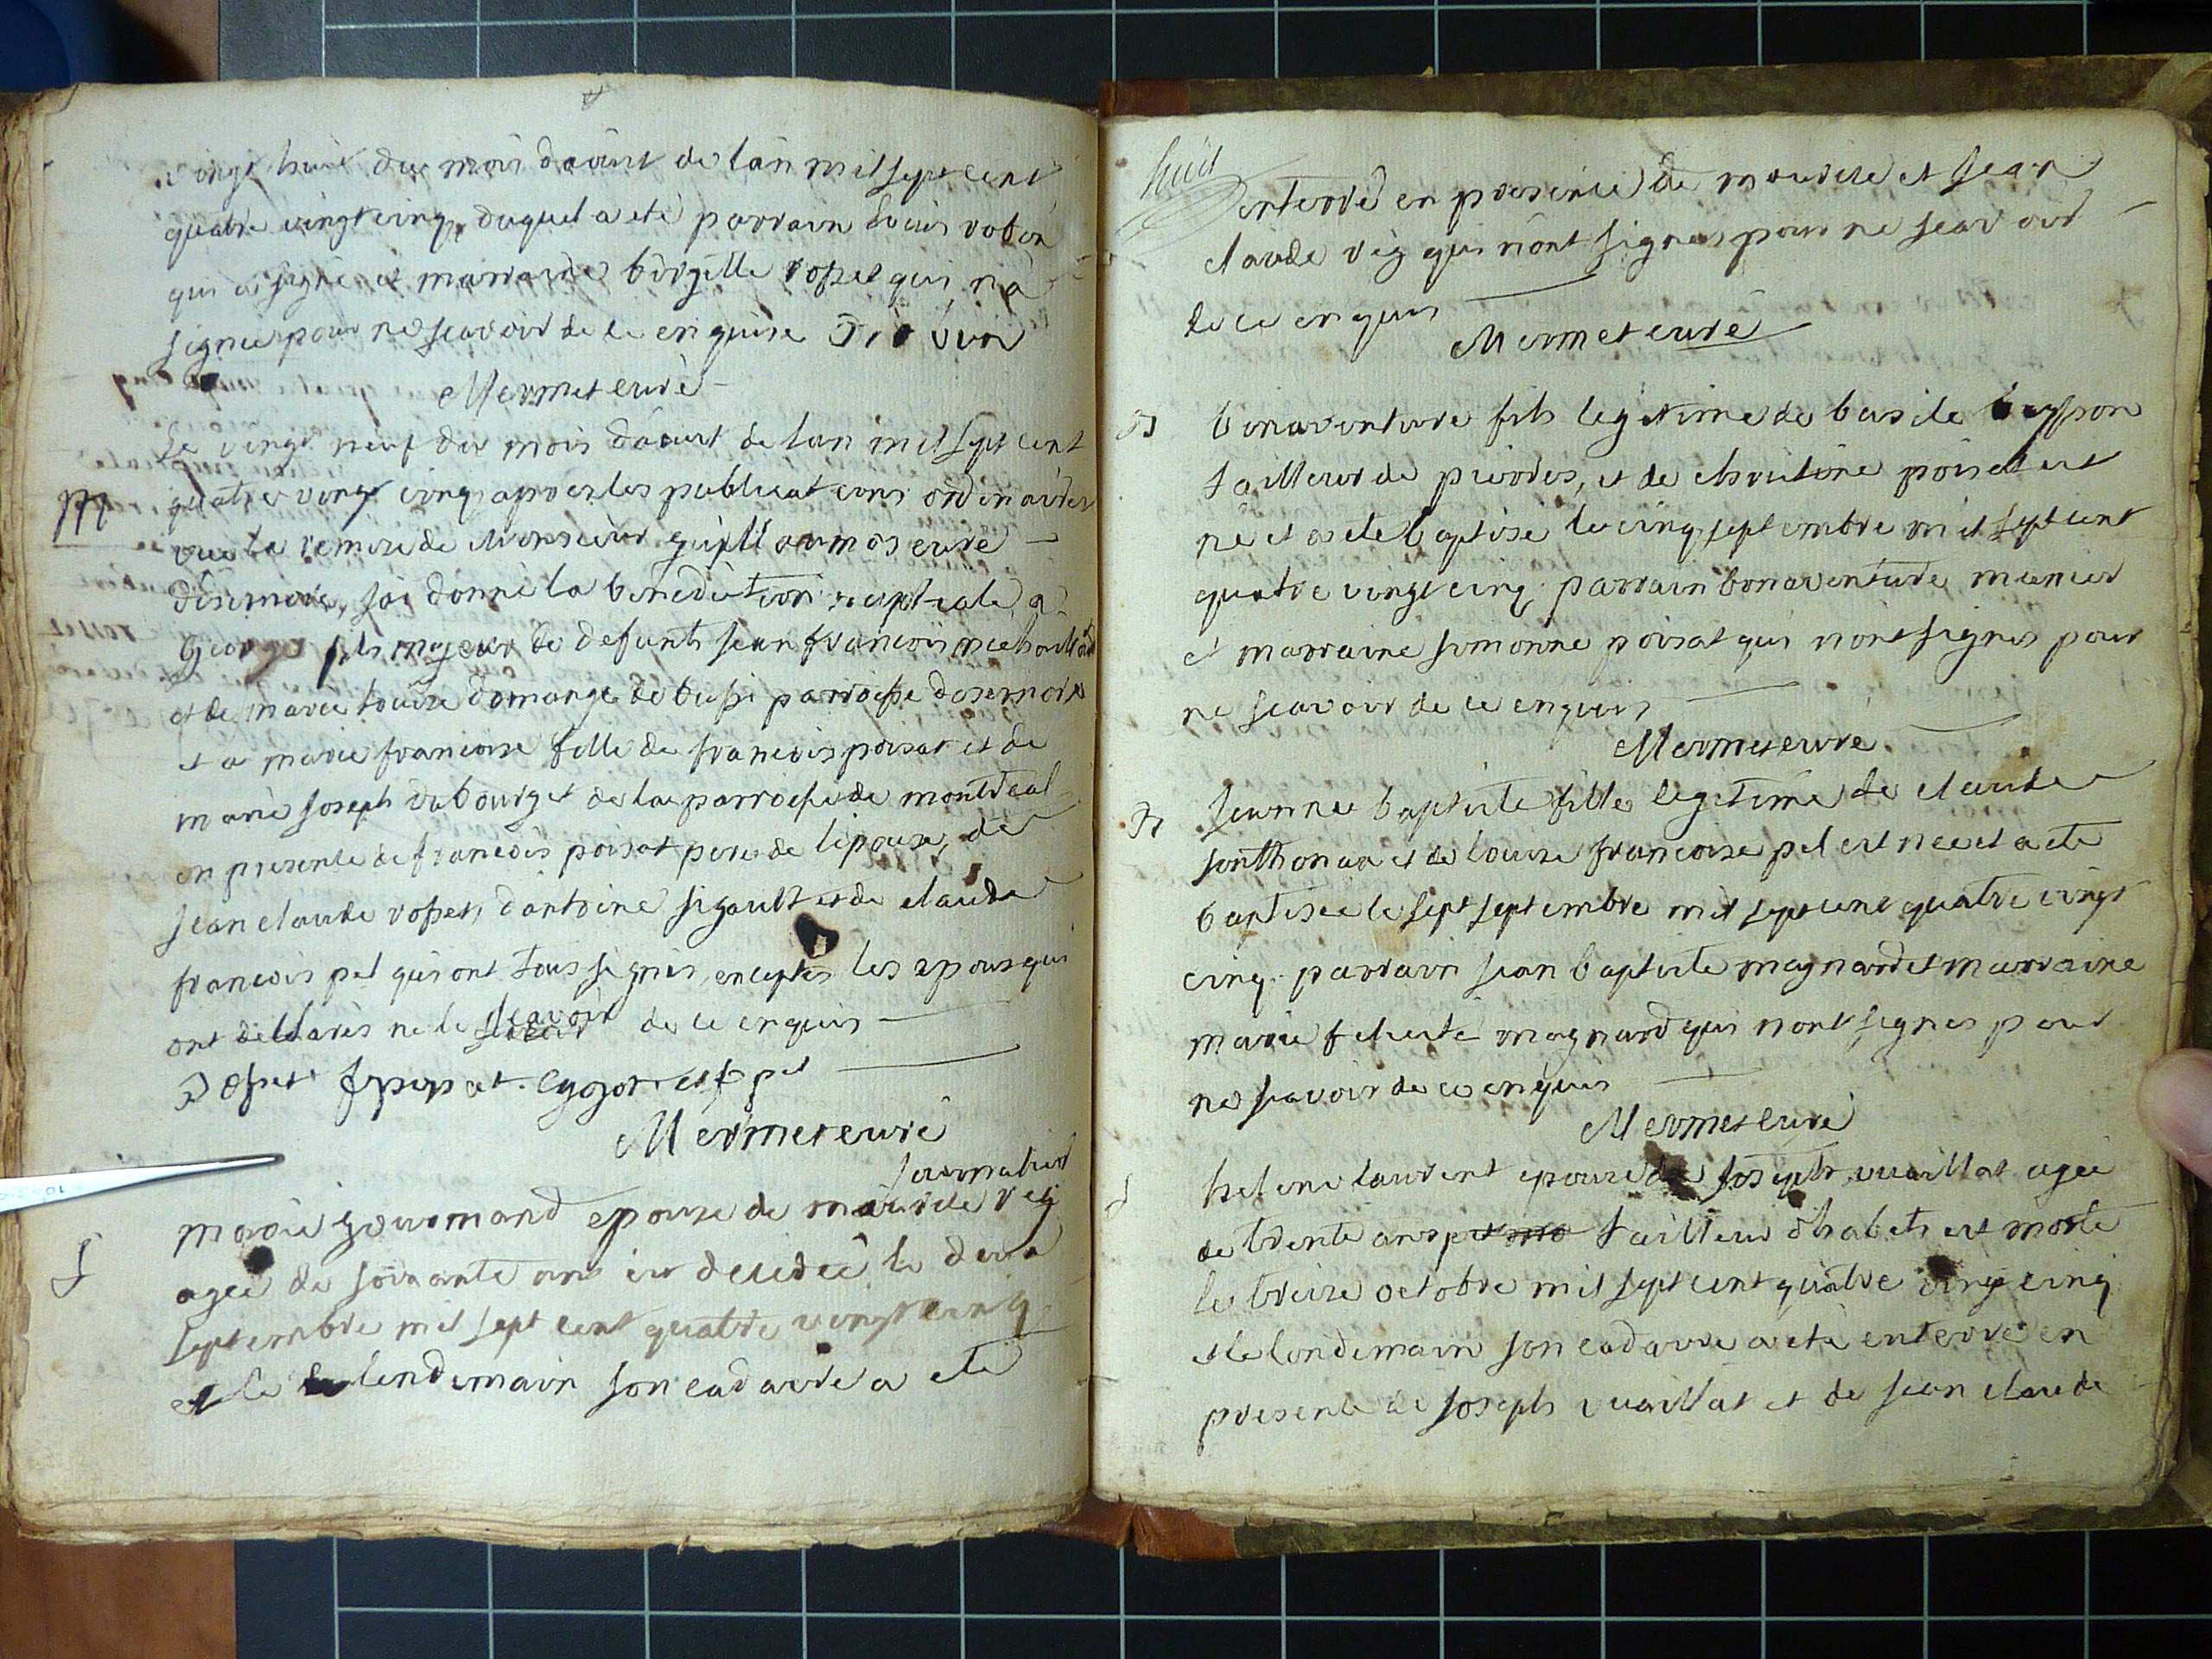 vingt huit du mois daoüst de lan mil sept cent
quatre vingt cinq, duquel a eté parrain Louis robin
qui a signé et marraine birgille rosset qui n'a
signer pour ne scavoir de ce enquise
Mermet curé
Le vingt neuf du mois daoust de lan mil sept cent
M
quatre vingt cinq apres les publications ordinaires
vue la remise de Monsieur curé
disernore, jai donné la benediction nuptiale a
George fils majeur de defunts jean francois michaillard
et de marie louise domange de bussi parroisse disernore
et a marie francoise fille de francois poisat et de
marie joseph dubourget de la parroisse de montreal
en presence de francois poisat pere de lepouse, de
jean claude rosset, dantoine sigault et de claude
francois pel qui ont tous signés, exceptés les epoux qui
ont déclarés ne le scavoir de ce enquis
Rosset f poisat cf pel
Mermet curé
journalier
marie gourmand epouse de maurice rey
S
agee de soixante ans est decedée le deux
septembre mil sept cent quatre vingt cinq
et le lendemain son cadavre a eté
huit
enterré en presence de maurice et jean
claude rey qui n'ont signer pour ne scavoir
de ce enquis
Mermet curé
B
bonaventure fils legitime de basile
tailleur de pierres, et de christine poisat est
ne et a ete baptisé le cinq septembre mil sept cent
quatre vingt cinq. parrain bonaventure meunier
et marraine simonne poisat qui n'ont signes pour
ne scavoir de ce enquis
Mermet curé
B
jeanne baptiste fille legitime de claude
sonthonax et de louise francoise pel est nee et a ete
baptisée le sept septembre mil sept cent quatre vingt
cinq. parrain jean baptiste magnard et marraine
marie felicité magnard qui n'ont signes pour
ne scavoir de ce enquis
Mermet curé
S
helene laurent epouse de joseph vuaillat agee
de trente ans tailleur dhabits est morte
le treize octobre mil sept cent quatre vingt cinq
et le lendemain son cadavre a eté enterré en
presence de joseph vuaillat et de jean claude